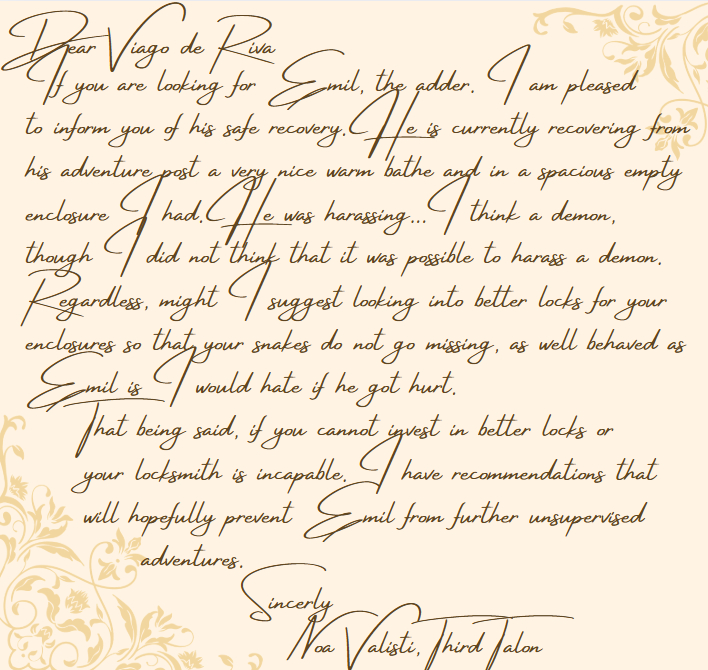 Dear Viago de Riva
If you are looking for Emil, the adder. I am pleased
to inform you of his safe recovery. He is currently recovering from
his adventure post a very nice warm bathe and in a spacious empty
enclosure I had. He was harassing... I think a demon,
though I did not think that it was possible to harass a demon.
Regardless, might I suggest looking into better locks for your
enclosures so that your snakes do not go missing, as well behaved as
Emil is I would hate if he got hurt.
That being said, if you cannot invest in better locks or
your locksmith is incapable. I have recommendations that
will hopefully prevent Emil from further unsupervised
adventures.
Sincerly
Noa Valisti, Third Talon